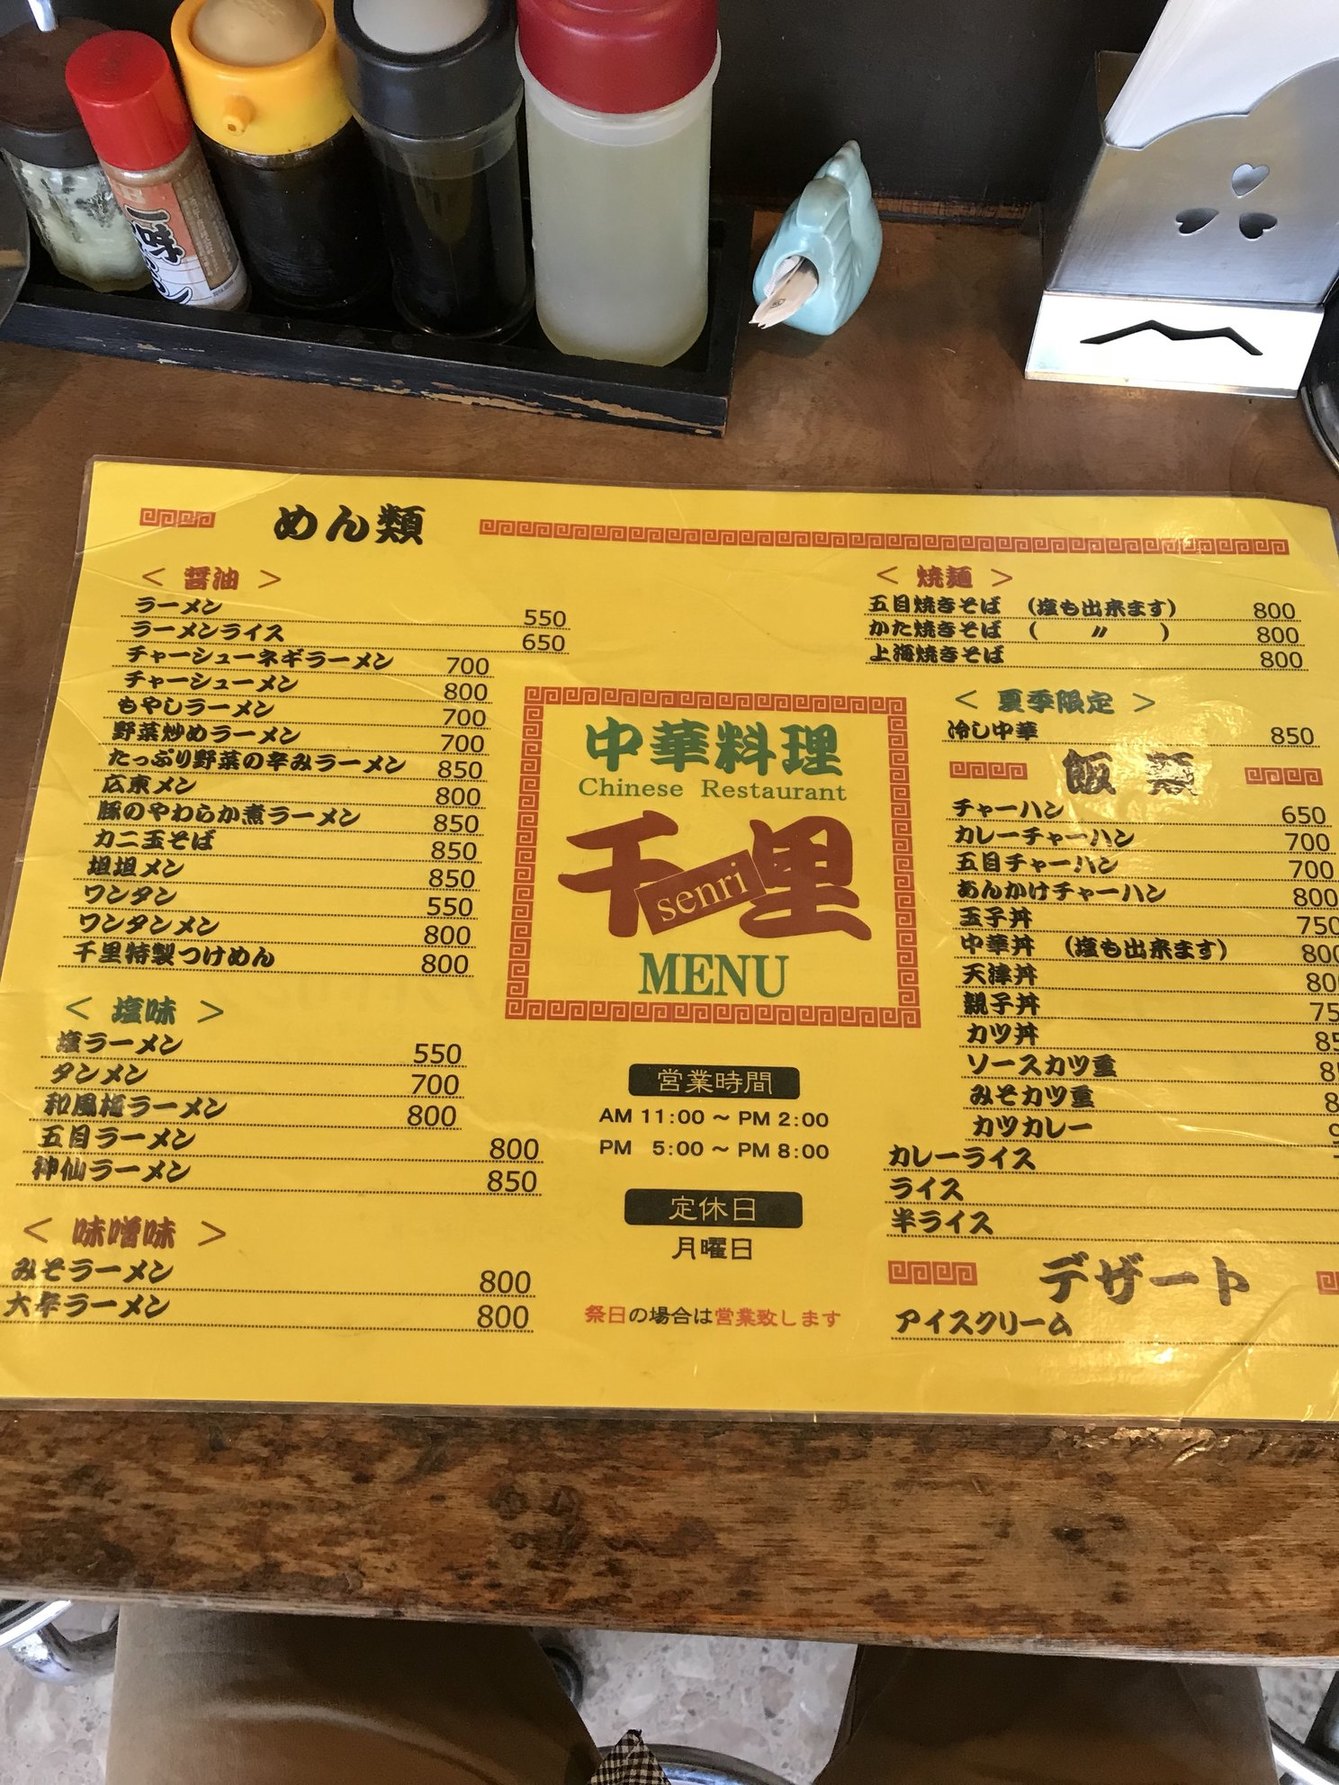 一味
めん類
< 醤油 >
ラーメン 550
ラーメンライス 650
チャーシューネギラーメン 700
チャーシューメン 800
もやしラーメン 700
野菜炒めラーメン 700
たっぷり野菜の辛みラーメン 850
広東メン 800
豚のやわらか煮ラーメン 850
カニ玉そば 850
坦坦メン 850
ワンタン 550
ワンタンメン 800
千里特製つけめん 800
< 塩味 >
塩ラーメン 550
タンメン 700
和風梅ラーメン 800
五目ラーメン 800
神仙ラーメン 850
< 味噌味 >
みそラーメン 800
大辛ラーメン 800
中華料理
Chinese Restaurant
千里
senri
MENU
営業時間
AM 11:00 ～ PM 2:00
PM 5:00 ～ PM 8:00
定休日
月曜日
祭日の場合は営業致します
< 焼麺 >
五目焼きそば (塩も出来ます) 800
かた焼きそば ( 〃 ) 800
上海焼きそば 800
< 夏季限定 >
冷し中華 850
飯類
チャーハン 650
カレーチャーハン 700
五目チャーハン 700
あんかけチャーハン 800
玉子丼 750
中華丼 (塩も出来ます) 800
天津丼 80
親子丼 75
カツ丼 85
ソースカツ重 8
みそカツ重 8
カツカレー
カレーライス
ライス
半ライス
デザート
アイスクリーム